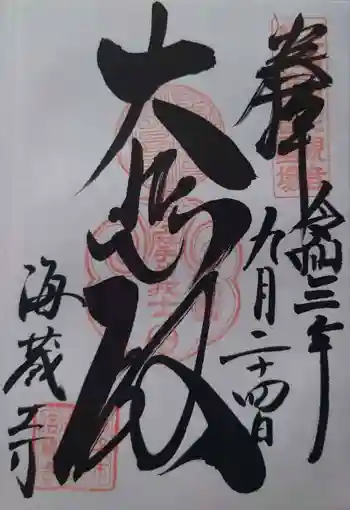 奉拝
令和三年
九月二十四日
大悲殿
海蔵寺